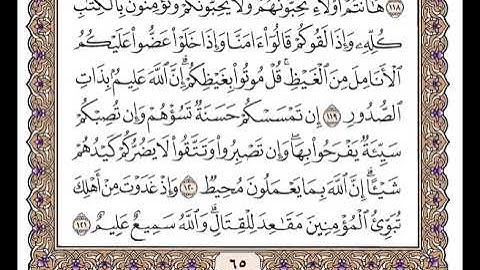 ١١٨ هَٰٓأَنتُمْ أُو۟لَآءِ تُحِبُّونَهُمْ وَلَا يُحِبُّونَكُمْ وَتُؤْمِنُونَ بِٱلْكِتَٰبِ
كُلِّهِۦ وَإِذَا لَقُوكُمْ قَالُوٓا۟ ءَامَنَّا وَإِذَا خَلَوْا۟ عَضُّوا۟ عَلَيْكُمُ
ٱلْأَنَامِلَ مِنَ ٱلْغَيْظِ ۚ قُلْ مُوتُوا۟ بِغَيْظِكُمْ ۗ إِنَّ ٱللَّهَ عَلِيمٌۢ بِذَاتِ
ٱلصُّدُورِ ١١٩ إِن تَمْسَسْكُمْ حَسَنَةٌ تَسُؤْهُمْ وَإِن تُصِبْكُمْ
سَيِّئَةٌ يَفْرَحُوا۟ بِهَا ۖ وَإِن تَصْبِرُوا۟ وَتَتَّقُوا۟ لَا يَضُرُّكُمْ كَيْدُهُمْ
شَيْـًٔا ۗ إِنَّ ٱللَّهَ بِمَا يَعْمَلُونَ مُحِيطٌ ١٢٠ وَإِذْ غَدَوْتَ مِنْ أَهْلِكَ
تُبَوِّئُ ٱلْمُؤْمِنِينَ مَقَٰعِدَ لِلْقِتَالِ ۗ وَٱللَّهُ سَمِيعٌ عَلِيمٌ ١٢١
٦٥